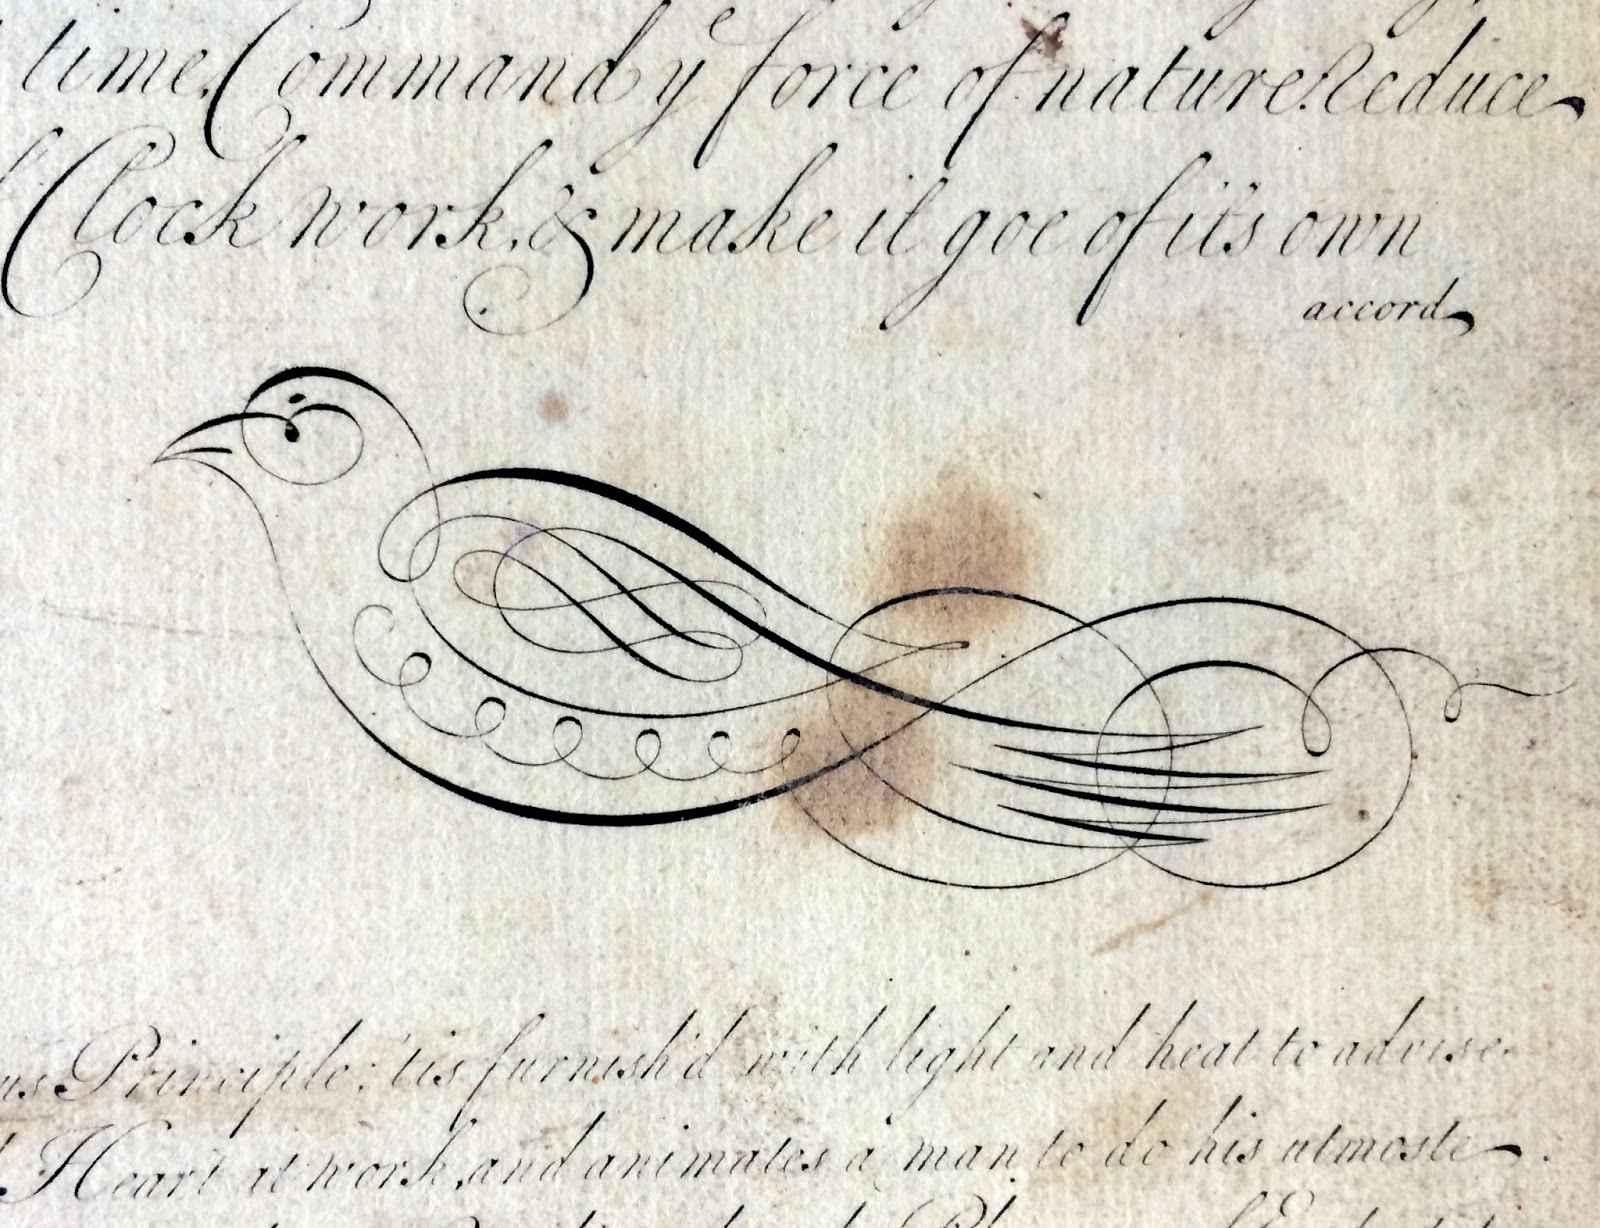 time. Command yᵉ force of nature. Reduce
Clock work, & make it goe of it's own
accord
Principle: 'tis furnish'd with light and heat to advise
Heart at work, and animates a man to do his utmoste.